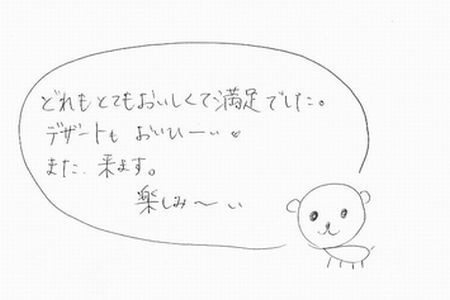 どれもとてもおいしくて満足でした。
デザートも おいひーい♥
また、来ます。
楽しみ〜い